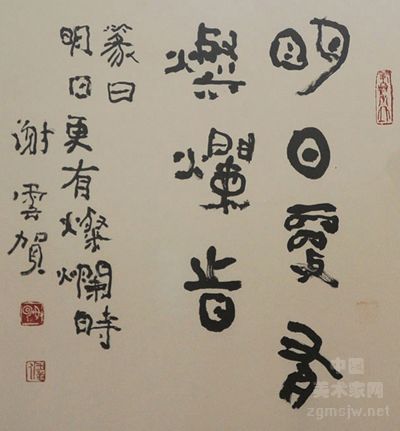 明日更有
燦爛時
篆曰
明日更有燦爛時
謝雲賀
中国
美术家网
zgmsjw.net